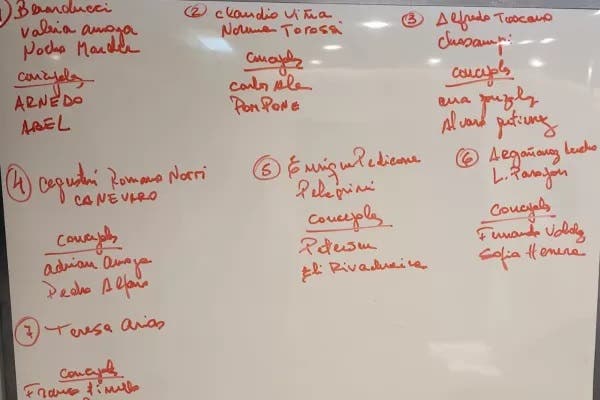 1) Berarducci
Valeria Amaya
Nocha
Concejales
ARNEDO
ABEL
2 Claudio Viña
Norma Torossi
Concejales
Carlos
POMPONE
3 Alfredo Toscano
Concejales
Ana Gonzalez
Alvaro Gutierrez
4 Romano Norri
CANEVARO
Concejales
Adrian Amaya
Pedro Alfaro
5 Enrique Pedicone
Pelegrini
Concejales
Petersen
Eli Rivadeneira
6 Argañaraz
L. Paragon
Concejales
Fernando Valdez
Sofia Herrera
7 Teresa Arias
Concejales
Franco